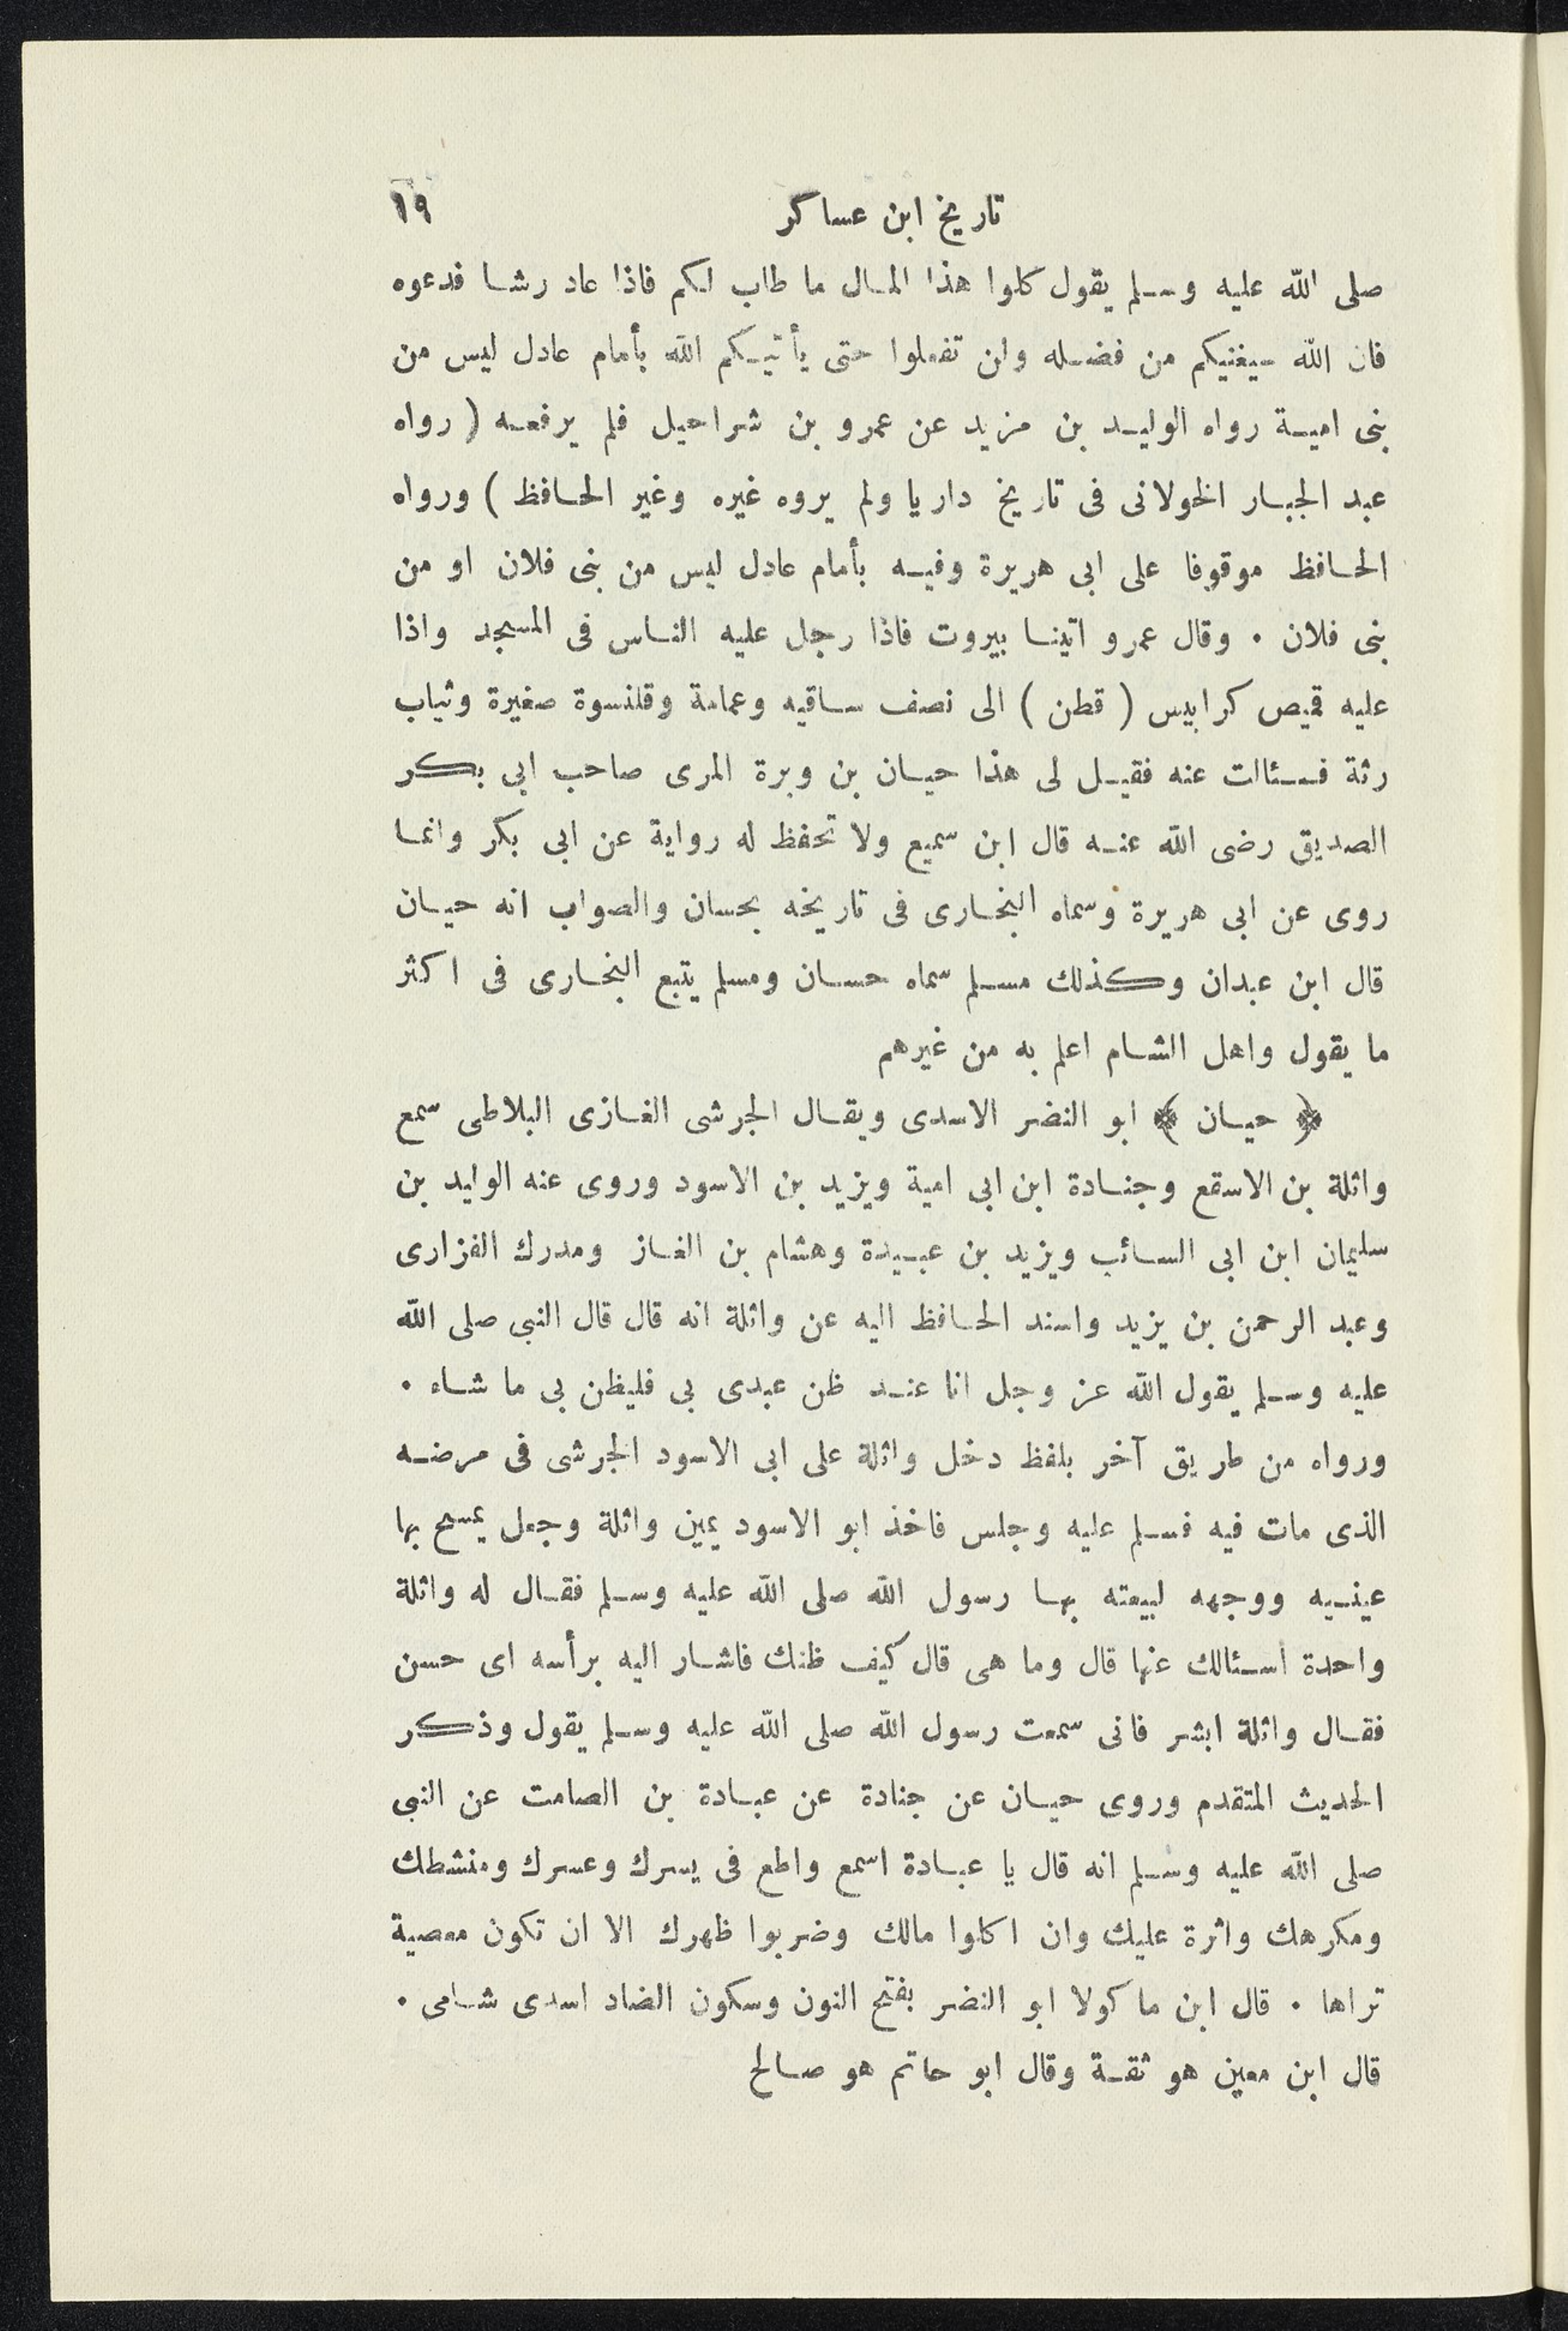 تاريخ ابن عساكر ١٩
صلى الله عليه وسلم يقول كلوا هذا المال ما طاب لكم فاذا عاد رشا فدعوه
فان الله سيغنيكم من فضله ولن تفعلوا حتى يأتيكم الله بأمام عادل ليس من
بنى امية رواه الوليد بن مزيد عن عمرو بن شراحيل فلم يرفعه (رواه
عبد الجبار الخولانى فى تاريخ داريا ولم يروه غيره وغير الحافظ) ورواه
الحافظ موقوفا على ابى هريرة وفيه بأمام عادل ليس من بنى فلان او من
بنى فلان . وقال عمرو اتينا بيروت فاذا رجل عليه الناس فى المسجد واذا
عليه قميص كرابيس (قطن) الى نصف ساقيه وعمامة وقلنسوة صغيرة وثياب
رثة فسئالت عنه فقيل لى هذا حيان بن وبرة المرى صاحب ابى بكر
الصديق رضى الله عنه قال ابن سميع ولا تحفظ له رواية عن ابى بكر وانما
روى عن ابى هريرة وسماه البخارى فى تاريخه بحسان والصواب انه حيان
قال ابن عبدان وكذلك مسلم سماه حسان ومسلم يتبع البخارى فى اكثر
ما يقول واهل الشام اعلم به من غيرهم
﴿ حيان ﴾ ابو النضر الاسدى ويقال الجرشى الغازى البلاطى سمع
واثلة بن الاسقع وجنادة ابن ابى امية ويزيد بن الاسود وروى عنه الوليد بن
سليمان ابن ابى السائب ويزيد بن عبيدة وهشام بن الغاز ومدرك الفزارى
وعبد الرحمن بن يزيد واسند الحافظ اليه عن واثلة انه قال قال النبى صلى الله
عليه وسلم يقول الله عز وجل انا عند ظن عبدى بى فليظن بى ما شاء .
ورواه من طريق آخر بلفظ دخل واثلة على ابى الاسود الجرشى فى مرضه
الذى مات فيه فسلم عليه وجلس فاخذ ابو الاسود يمين واثلة وجعل يمسح بها
عينيه ووجهه لبيعته بها رسول الله صلى الله عليه وسلم فقال له واثلة
واحدة اسئالك عنها قال وما هى قال كيف ظنك فاشار اليه برأسه اى حسن
فقال واثلة ابشر فانى سمعت رسول الله صلى الله عليه وسلم يقول وذكر
الحديث المتقدم وروى حيان عن جنادة عن عبادة بن الصامت عن النبى
صلى الله عليه وسلم انه قال يا عبادة اسمع واطع فى يسرك وعسرك ومنشطك
ومكرهك واثرة عليك وان اكلوا مالك وضربوا ظهرك الا ان تكون معصية
تراها . قال ابن ماكولا ابو النضر بفتح النون وسكون الضاد اسدى شامى .
قال ابن معين هو ثقة وقال ابو حاتم هو صالح